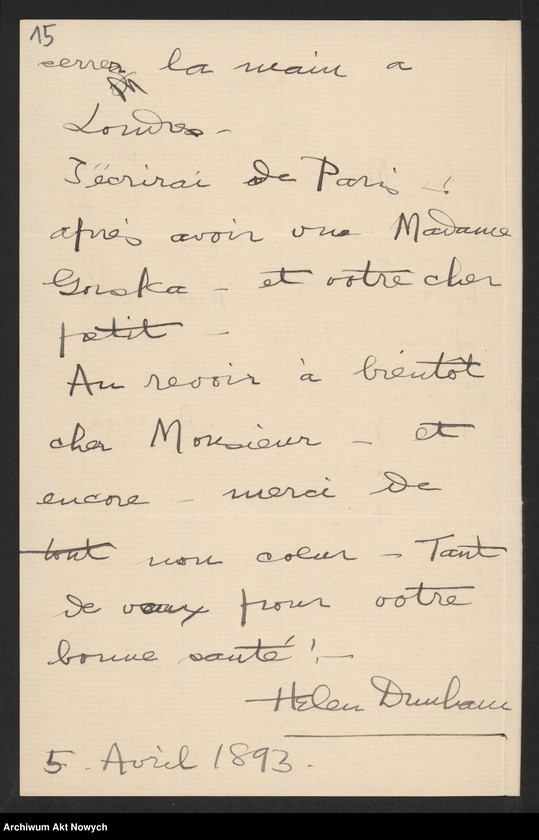 15
serrer la main a
Londres -
J'écrirai de Paris -
après avoir vue Madame
Gorska - et votre cher
petit -
Au revoir à bientôt
cher Monsieur - et
encore - merci de
tout mon coeur - Tant
de vœux pour votre
bonne santé! -
Helen Dunham
5. Avril 1893.
Archiwum Akt Nowych